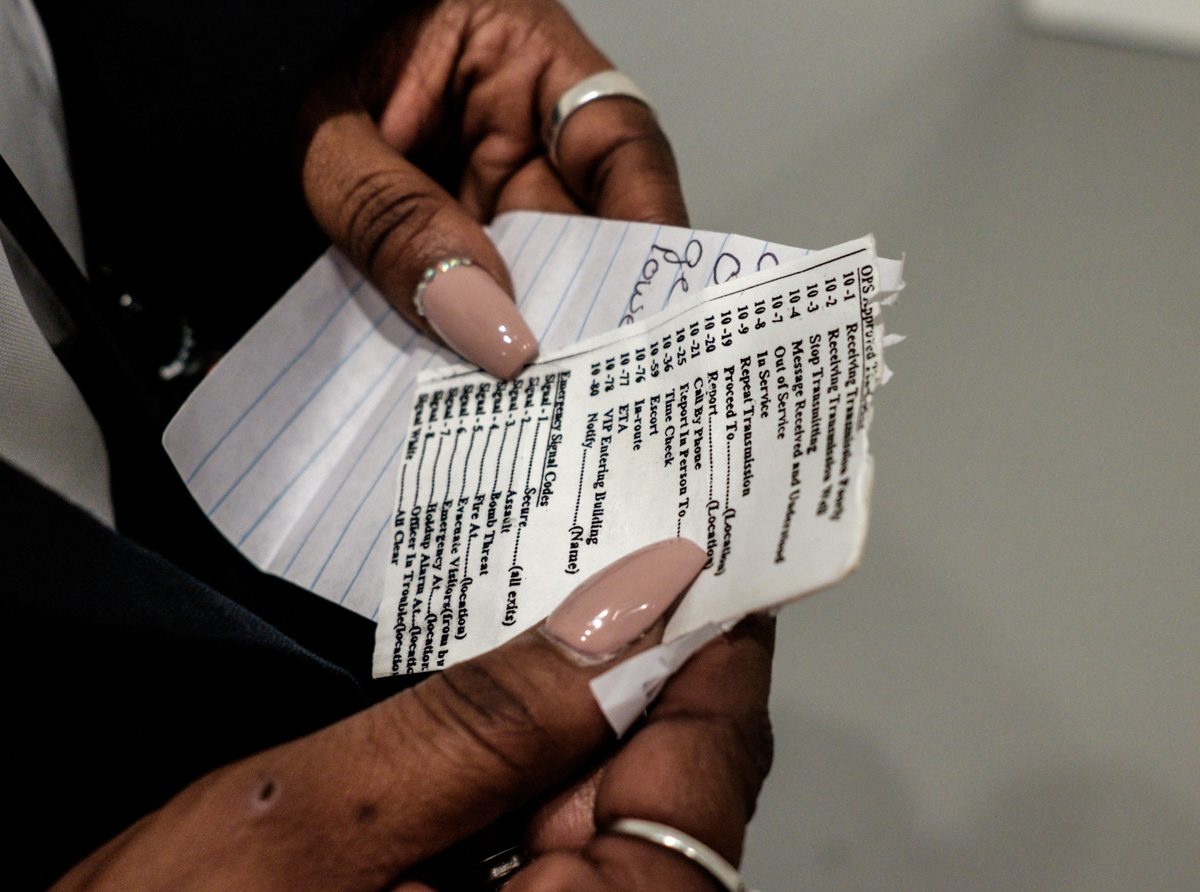 OPS Approved
10 -1 Receiving Transmission Poorly
10 -2 Receiving Transmission Well
10 -3 Stop Transmitting
10 -4 Message Received and Understood
10 -7 Out of Service
10 -8 In Service
10 -9 Repeat Transmission
10 -19 Proceed To..........(Location)
10 -20 Report..............(Location)
10 -21 Call By Phone
10 -25 Report In Person To......
10 -36 Time Check
10 -59 Escort
10 -76 In-route
10 -77 ETA
10 -78 VIP Entering Building
10 -80 Notify..............(Name)
Emergency Signal Codes
Signal - 1..........Secure........(all exits)
Signal - 2..........Assault
Signal - 3..........Bomb Threat
Signal - 4..........Fire At.......(location)
Signal - 5..........Evacuate Visitors(from bu
Signal - 6..........Emergency At....(location
Signal - 7..........Holdup Alarm At...(locatio
Signal - 8..........Officer In Trouble(locatio
Signal White..........All Clear
ge
louse